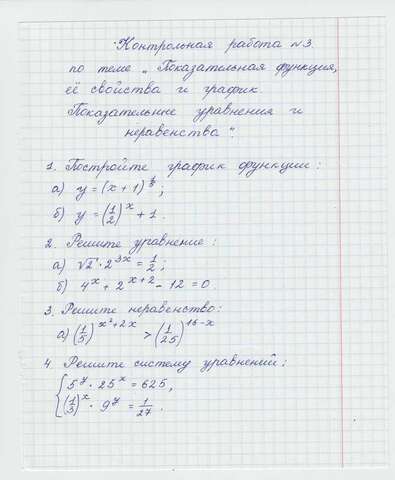 Контрольная работа №3.
по теме „Показательная функция,
её свойства и график.
Показательные уравнения и
неравенства".
1. Постройте график функции:
а) y = (x + 1)^{1/3};
б) y = (1/2)^x + 1.
2. Решите уравнение:
а) √2 · 2^{3x} = 1/2;
б) 4^x + 2^{x+2} - 12 = 0.
3. Решите неравенство:
а) (1/5)^{x²+2x} > (1/25)^{16-x}
4. Решите систему уравнений:
{ 5^y · 25^x = 625,
(1/3)^x · 9^y = 1/27.